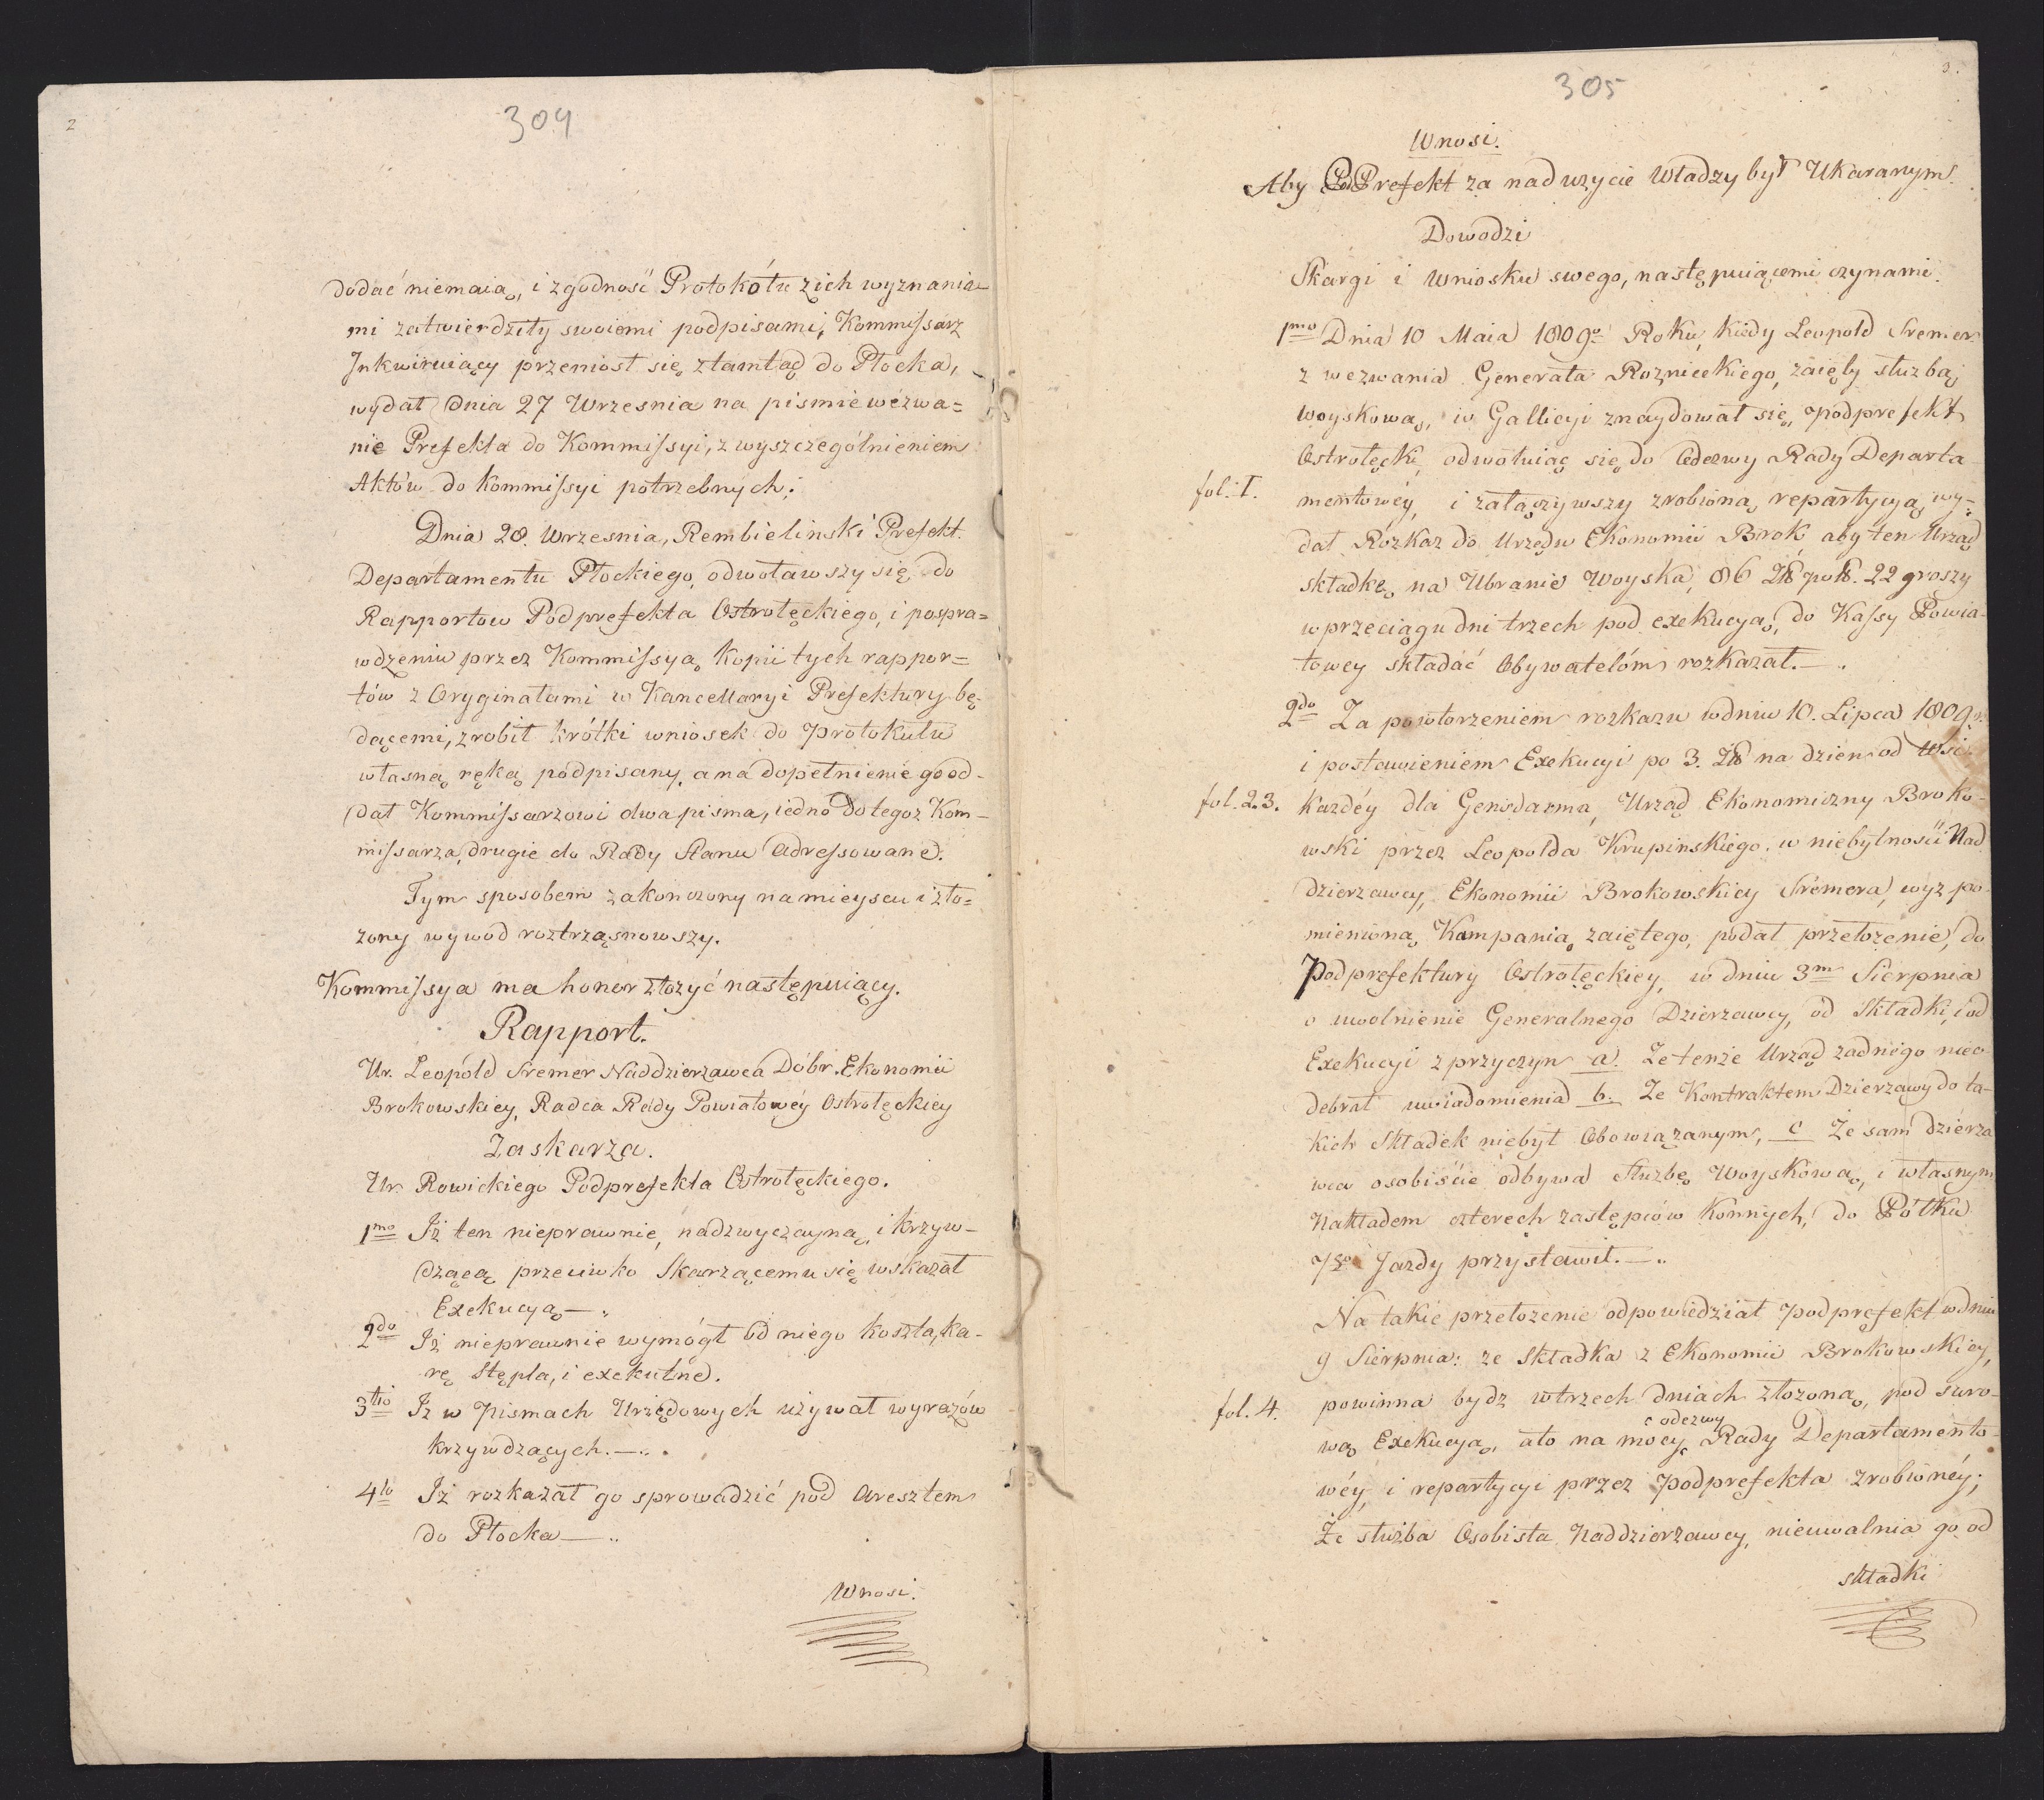 2
304
dodać niemaią, i zgodność Protokółu z ich wyznania-
mi zatwierdziły swoiemi podpisami, Kommissarz
Inkwiruiący przeniosł się ztamtąd do Płocka,
wydał dnia 27 Wrzesnia na pismie wezwa=
nie Prefekta do Kommissyi, z wyszczególnieniem
Aktów do Kommissyi potrzebnych.
Dnia 28. Wrzesnia, Rembielinski Prefekt
Departamentu Płockiego, odwoławszy się, do
Rapportow Podprefekta Ostrołęckiego, i pospra=
wdzeniu przez Kommissyą, kopii tych rappor=
tów z Oryginałami w Kancellaryi Prefektury bę-
dącemi, zrobił krótki wniosek do protokułu
własną ręką podpisany, a na dopełnienie go od-
dał Kommissarzowi dwa pisma, iedno do tegoż Kom-
missarza, drugie do Rady Stanu adressowane.
Tym sposobem zakonczony na mieyscu i zło=
zony wywod roztrząsnowszy.
Kommissya ma honor złozyć następuiący.
Rapport.
Ur. Leopold Sremer Naddzierzawca Dóbr Ekonomii
Brokowskiey, Radca Rady Powiatowéy Ostrołęckiey
Zaskarza.
Ur. Rowickiego Podprefekta Ostrołęckiego.
1mo Iż ten nieprawnie, nadzwyczayną, i krzyw-
dzącą przeciwko Skarzącemu się wskazał
Exekucyą —
2do Iż nieprawnie wymógł od niego koszta, ka-
rę Stępla, i exekutne.
3tio Iz w Pismach Urzędowych używał wyrazów
krzywdzących. —
4to Iż rozkazał go sprowadzić pod aresztem
do Płocka —
Wnosi.
3.
305
Wnosi.
Aby PodPrefekt za naduzycie Władzy był Ukaranym.
Dowodzi
Skargi i Wniosku swego, następuiącemi czynami.
1mo Dnia 10 Maia 1809o Roku, kiedy Leopold Sremer
z wezwania Generała Roznieckiego, zaięty służbą
woyskową, w Gallicyi znaydował się, podprefekt
Ostrołęcki, odwołuiąc się do Odezwy Rady Departa-
fol: I. mentowéy, i załączywszy zrobioną repartycyą, wy-
dał Rozkaz do Urzędu Ekonomii Brok aby ten Urząd
składkę, na Ubranie Woyska, 86 Zł pol. 22 groszy
w przeciągu dni trzech pod exekucyą, do Kassy Powia-
towey składać Obywatelóm rozkazał. —
2do Za powtorzeniem rozkazu w dniu 10. Lipca 1809 r.
i postawieniem Exekucyi po 3. Zł na dzien od Wsi
fol. 2.3. kazdéy dla Gensdarma, Urząd Ekonomiczny Broko-
wski przez Leopolda Krupinskiego. w niebytności Nad
dzierzawcy, Ekonomii Brokowskiey Sremera, wyz po-
mienioną Kampanią zaiętego, podał przełozenie, do
Podprefektury Ostrołęckiey, w dniu 3m Sierpnia
o uwolnienie Generalnego Dzierzawcy, od Składki, i od
Exekucyi z przyczyn a. Ze tenże Urząd zadnégo nieo-
debrał uwiadomienia b. Ze Kontraktem Dzierzawy do ta-
kich Składek niebył Obowiązanym, c Że sam dzierza
wca osobiście odbywa Służbę Woyskową, i własnym
Nakładem czterech zastępców Konnych, do Półku
7go Jazdy przystawił. —
Na takie przełozenie odpowiedział podprefekt w dniu
9 Sierpnia: ze Składka z Ekonomii Brokowskiey,
fol. 4. powinna bydz w trzech dniach złozoną, pod suro-
wą Exekucyą, a to na mocy odezwy Rady Departamento-
wéy, i repartycyi przez podprefekta zrobionéy;
Że służba Osobista Naddzierzawcy, nieuwalnia go od
składki